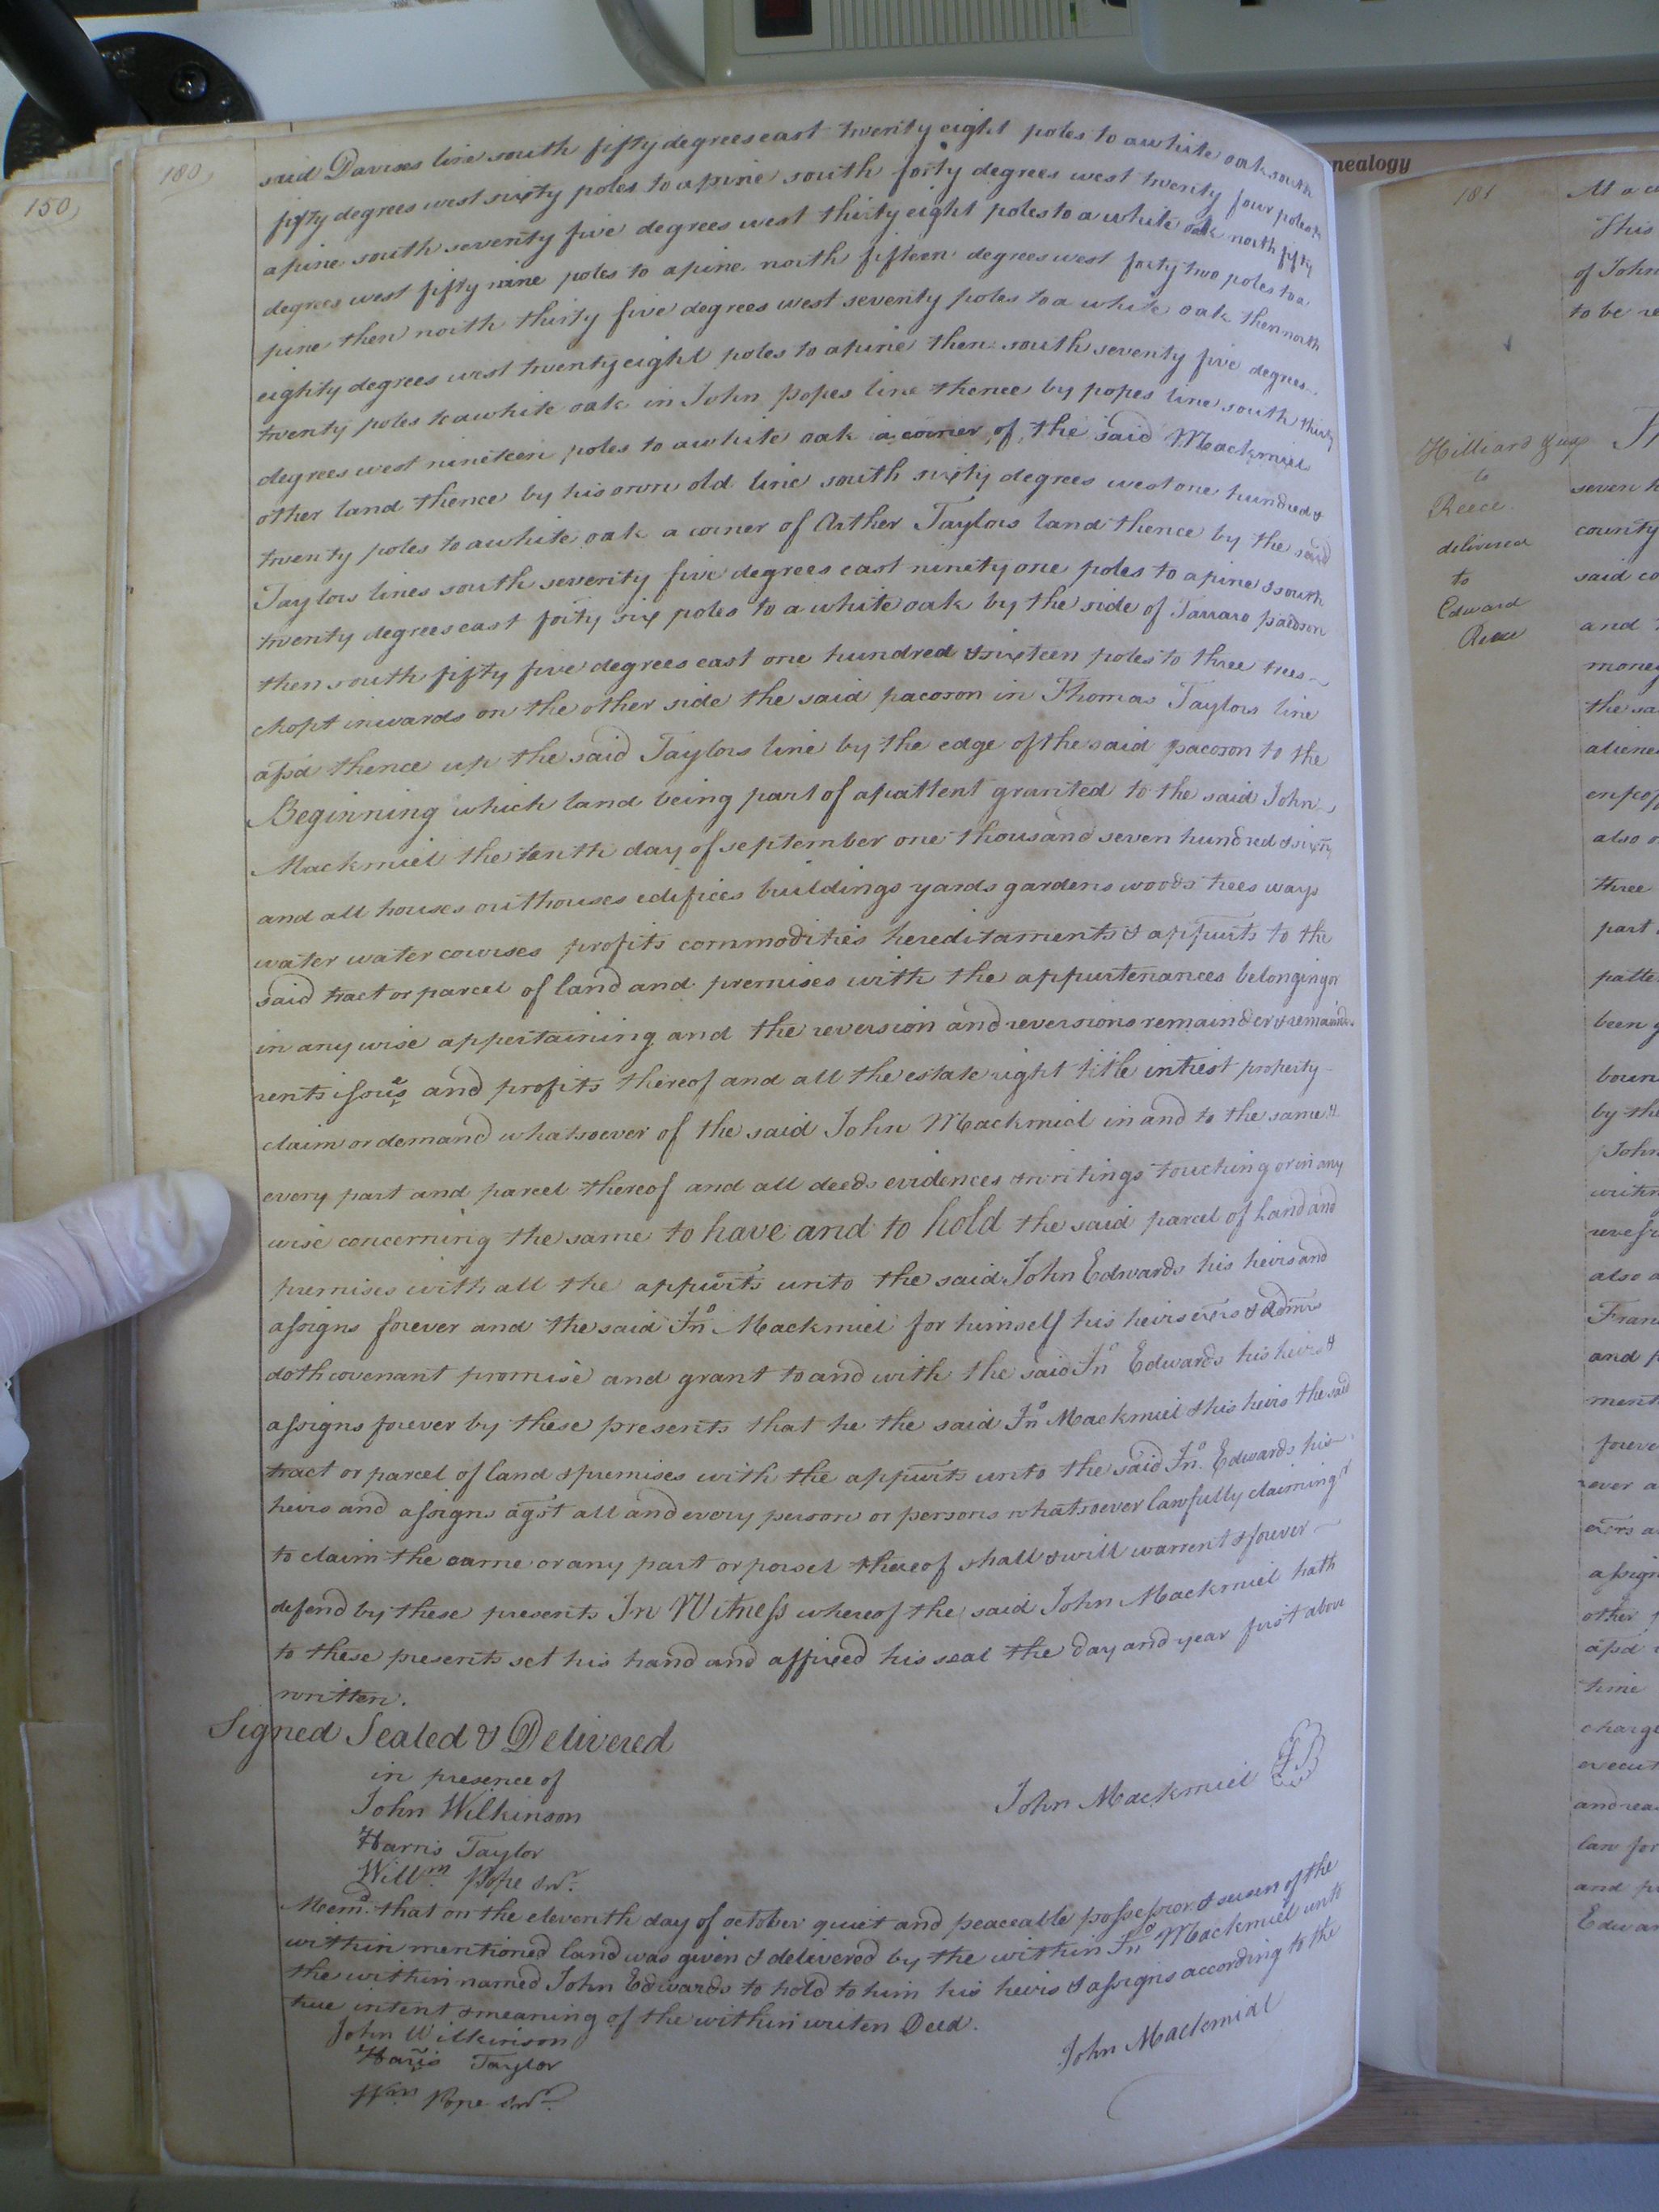 150
180
said Davises line south fifty degrees east twenty eight poles to a white oak south
fifty degrees west sixty poles to a pine south forty degrees west twenty four poles to
a pine south seventy five degrees west thirty eight poles to a white oak north fifty
degrees west fifty nine poles to a pine north fifteen degrees west forty two poles to a
pine then north thirty five degrees west seventy poles to a white oak then north
eighty degrees west twenty eight poles to a pine then south seventy five degrees
twenty poles to a white oak in John popes line thence by popes line south thirty
degrees west nineteen poles to a white oak a corner of the said Mackmiel
other land thence by his own old line south sixty degrees west one hundred &
twenty poles to a white oak a corner of Arther Taylors land thence by the said
Taylors lines south seventy five degrees east ninety one poles to a pine & south
twenty degrees east forty six poles to a white oak by the side of Tarraro pacoson
then south fifty five degrees east one hundred & sixteen poles to three trees
chopt inwards on the other side the said pacoson in Thomas Taylors line
afsd thence up the said Taylors line by the edge of the said pacoson to the
Beginning which land being part of a pattent granted to the said John
Mackmiel the tenth day of september one thousand seven hundred & sixty
and all houses outhouses edifices buildings yards gardens woods trees ways
water water courses profits commodities hereditaments & appurts to the
said tract or parcel of land and premises with the appurtenances belonging or
in any wise appertaining and the reversion and reversions remainder & remaindrs
rents issues and profits thereof and all the estate right title intrest property
claim or demand whatsoever of the said John Mackmiel in and to the same &
every part and parcel thereof and all deeds evidences & writings touching or in any
wise concerning the same to have and to hold the said parcel of land and
premises with all the appurts unto the said John Edwards his heirs and
assigns forever and the said Jno Mackmiel for himself his heirs exrs & admrs
doth covenant promise and grant to and with the said Jno Edwards his heirs &
assigns forever by these presents that he the said Jno Mackmiel & his heirs the said
tract or parcel of land & premises with the appurts unto the said Jno. Edwards his
heirs and assigns agst all and every person or persons whatsoever lawfully claiming or
to claim the same or any part or porsel thereof shall & will warrent & forever
defend by these presents In Witness whereof the said John Mackmiel hath
to these presents set his hand and affixed his seal the day and year first above
written.
Signed Sealed & Delivered
in presence of
John Wilkinson
John Mackmiel
Harris Taylor
Willm. Pope Snr.
Memd. that on the eleventh day of october quiet and peaceable possession & seisen of the
within mentioned land was given & delivered by the within Jno Mackmiel unto
the within named John Edwards to hold to him his heirs & assigns according to the
true intent & meaning of the within writen Deed.
John Wilkinson
John Mackmial
Harris Taylor
Wm Pope Snr.
nealogy
181
At a
This
of John
to be re
Hilliard & ux
to
Reece
delivered
to
Edward
Reece
seven h
county
said co
and
money
the sa
aliene
enfeof
also o
three
part
patte
been g
boun
by the
John
also a
Fran
and p
ment
forev
ever a
exrs a
assign
other
afsd
time
charge
execut
and rea
law for
and p
Edwar